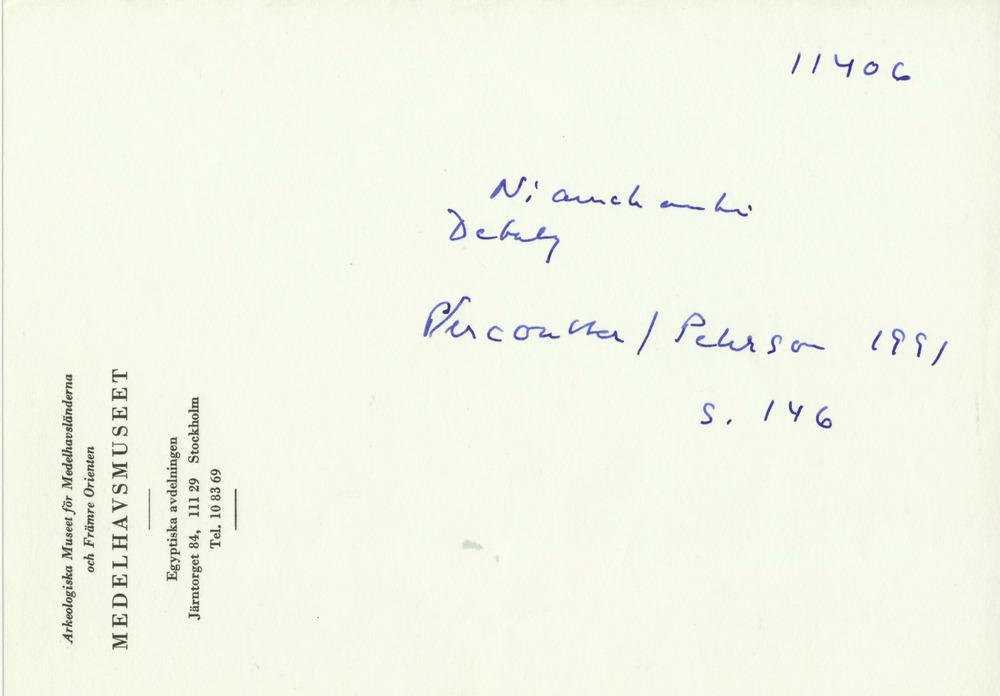 11406
Debaly
Vercoutter / Peterson 1991
s. 146
Arkeologiska Museet för Medelhavsländerna
och Främre Orienten
MEDELHAVSMUSEET
Egyptiska avdelningen
Järntorget 84, 111 29 Stockholm
Tel. 10 83 69